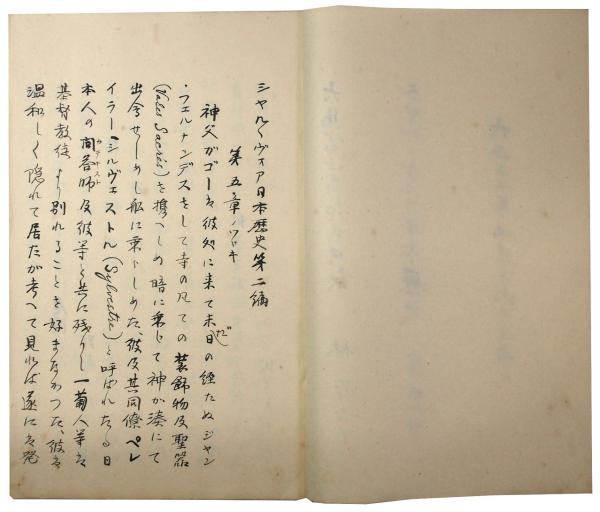 シヤルヴオア日本歴史第二編
第五章ノツヾキ
神父ガゴーは彼処に来て未だ日の経たぬジヤン
・フエルナンデスをして寺の凡ての装飾物及聖器
(Vases Sacrés)を携へしめ暗に乗じて神が湊にて
出会せしめし船に乗らしめた、彼及其同僚ペレ
イラー、シルヴエストル(Sylvestre)と呼ばれたる日
本人の問答師カテキスト及彼等と共に残りし一葡人等は
基督教徒より別れることを好まなかつた、彼は
温和しく隠れて居たが考へて見れば遂には発